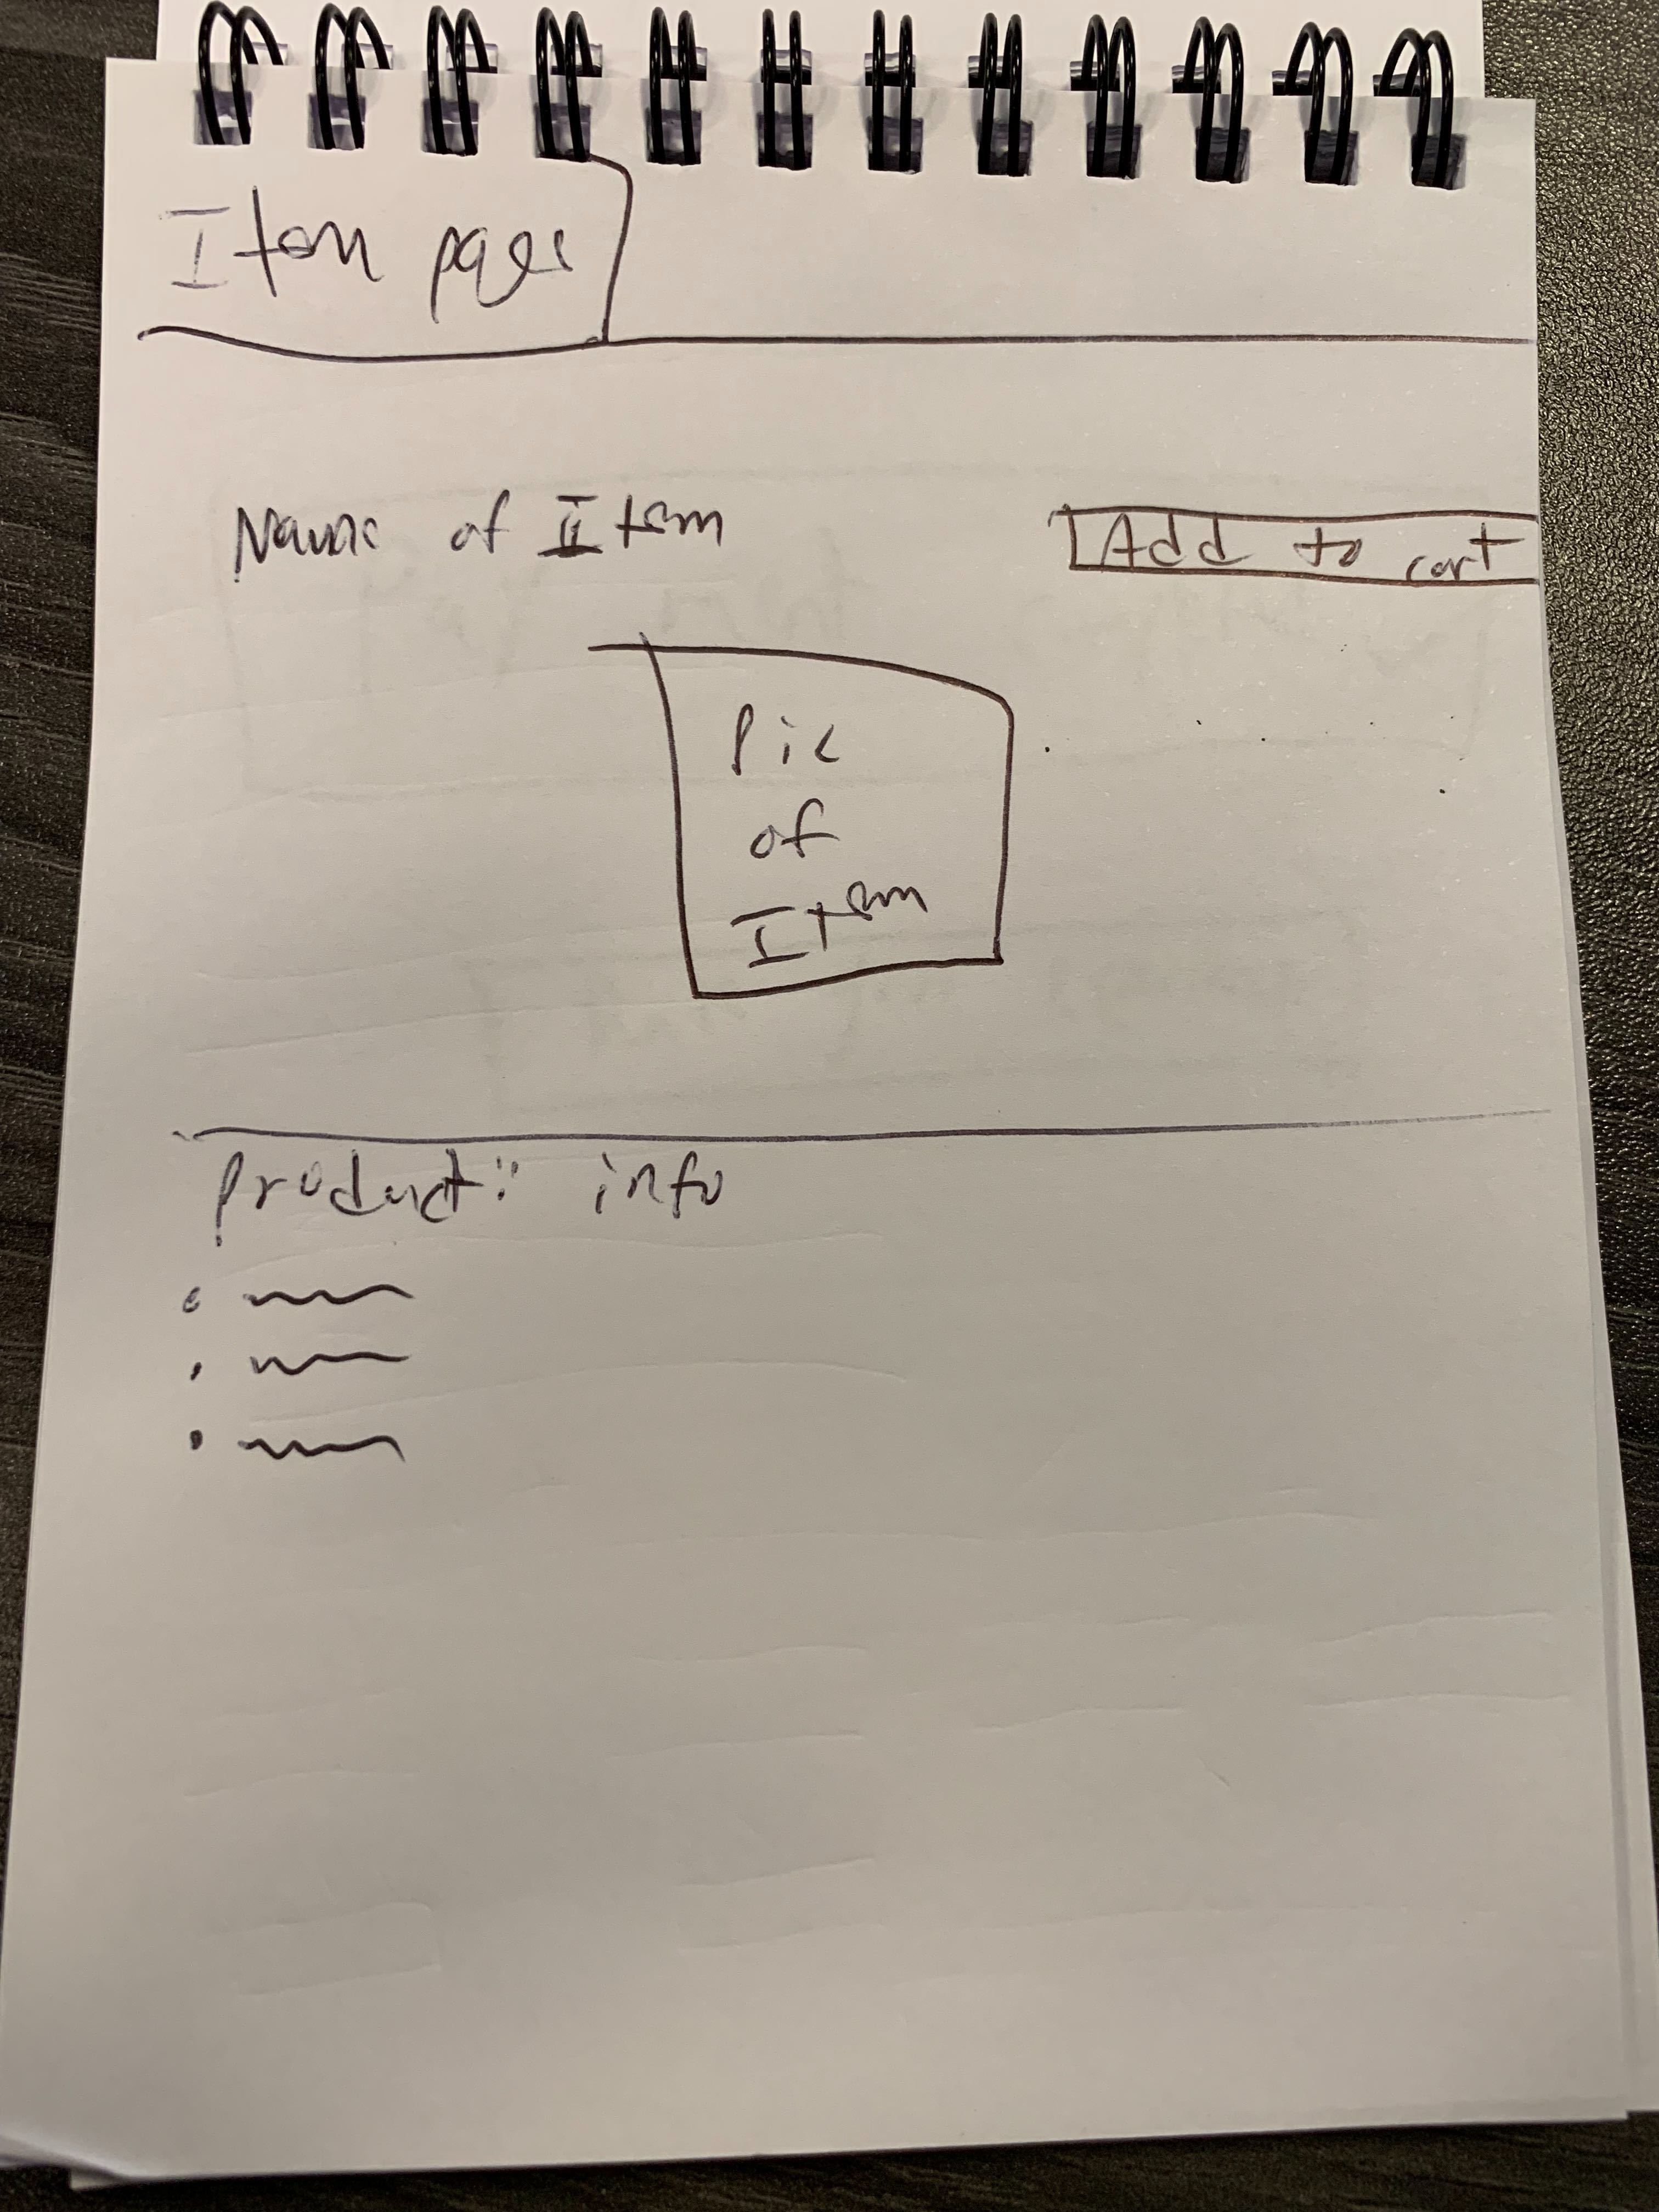 Item pages
Name of Item
Add to cart
Pic
of
Item
product: info